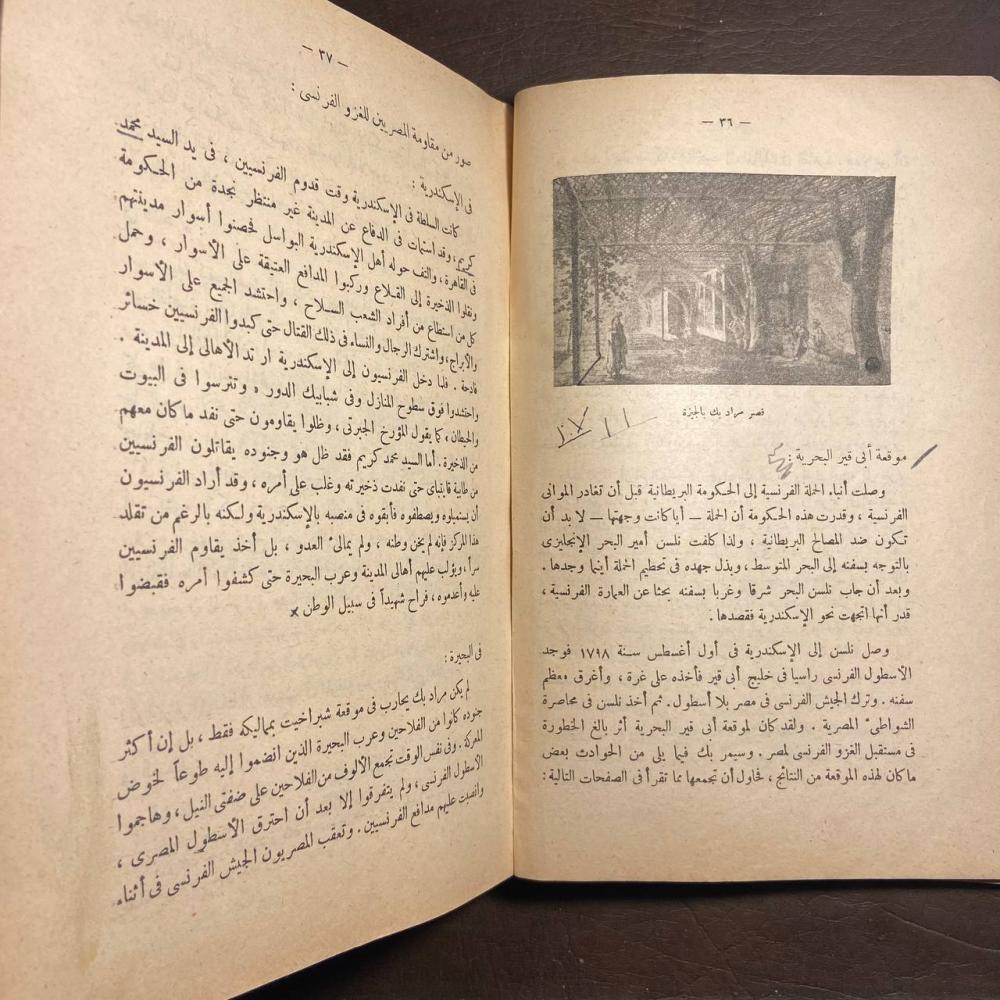 — ٣٦ —
قصر مراد بك بالجيزة
موقعة أبى قير البحرية :
وصلت أنباء الحملة الفرنسية إلى الحكومة البريطانية قبل أن تغادر الموانى
الفرنسية ، وقدرت هذه الحكومة أن الحملة — أيا كانت وجهتها — لا بد أن
تكون ضد المصالح البريطانية ، ولذا كلفت نلسن أمير البحر الإنجليزى
بالتوجه بسفنه إلى البحر المتوسط ، وبذل جهده فى تحطيم الحملة أينما وجدها .
وبعد أن جاب نلسن البحر شرقا وغربا بسفنه بحثا عن العمارة الفرنسية ،
قدر أنها اتجهت نحو الإسكندرية فقصدها .
وصل نلسن إلى الإسكندرية فى أول أغسطس سنة ١٧٩٨ فوجد
الأسطول الفرنسى راسيا فى خليج أبى قير فأخذه على غرة ، وأغرق معظم
سفنه . وترك الجيش الفرنسى فى مصر بلا أسطول . ثم أخذ نلسن فى محاصرة
الشواطئ المصرية . ولقد كان لموقعة أبى قير البحرية أثر بالغ الخطورة
فى مستقبل الغزو الفرنسى لمصر . وسيمر بك فيما يلى من الحوادث بعض
ما كان لهذه الموقعة من النتائج ، فحاول أن تجمعها مما تقرأ فى الصفحات التالية :
— ٣٧ —
صور من مقاومة المصريين للغزو الفرنسى :
فى الإسكندرية :
كانت السلطة فى الإسكندرية وقت قدوم الفرنسيين ، فى يد السيد محمد
كريم ، وقد استمات فى الدفاع عن المدينة غير منتظر نجدة من الحكومة
فى القاهرة ، والتف حوله أهل الإسكندرية البواسل فحصنوا أسوار مدينتهم
ونقلوا الذخيرة إلى القلاع وركبوا المدافع العتيقة على الأسوار ، وحمل
كل من استطاع من أفراد الشعب السلاح ، واحتشد الجميع على الأسوار
والأبراج ، واشترك الرجال والنساء فى ذلك القتال حتى كبدوا الفرنسيين خسائر
فادحة . فلما دخل الفرنسيون إلى الإسكندرية ارتد الأهالى إلى المدينة .
واحتشدوا فوق سطوح المنازل وفى شبابيك الدور « وتترسوا فى البيوت
والحيطان » كما يقول المؤرخ الجبرتى ، وظلوا يقاومون حتى نفد ما كان معهم
من الذخيرة . أما السيد محمد كريم فقد ظل هو وجنوده يقاتلون الفرنسيين
من طابية قايتباى حتى نفدت ذخيرته وغلب على أمره ، وقد أراد الفرنسيون
أن يستميلوه ويصطفوه فأبقوه فى منصبه بالإسكندرية ولكنه بالرغم من تقلد
هذا المركز فإنه لم يخن وطنه ، ولم يمالئ العدو ، بل أخذ يقاوم الفرنسيين
سرا ، ويؤلب عليهم أهالى المدينة وعرب البحيرة حتى كشفوا أمره فقبضوا
عليه وأعدموه ، فراح شهيداً فى سبيل الوطن x
فى البحيرة :
لم يكن مراد بك يحارب فى موقعة شبراخيت بمماليكه فقط ، بل إن أكثر
جنوده كانوا من الفلاحين وعرب البحيرة الذين انضموا إليه طوعاً لخوض
المعركة . وفى نفس الوقت تجمع الألوف من الفلاحين على ضفتى النيل ، وهاجموا
الأسطول الفرنسى ، ولم يتفرقوا إلا بعد أن احترق الأسطول المصرى ،
وانصبت عليهم مدافع الفرنسيين . وتعقب المصريون الجيش الفرنسى فى أثناء